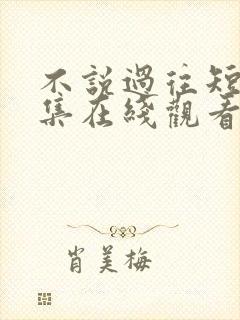 不說過往短
集在綫觀看
肖美梅